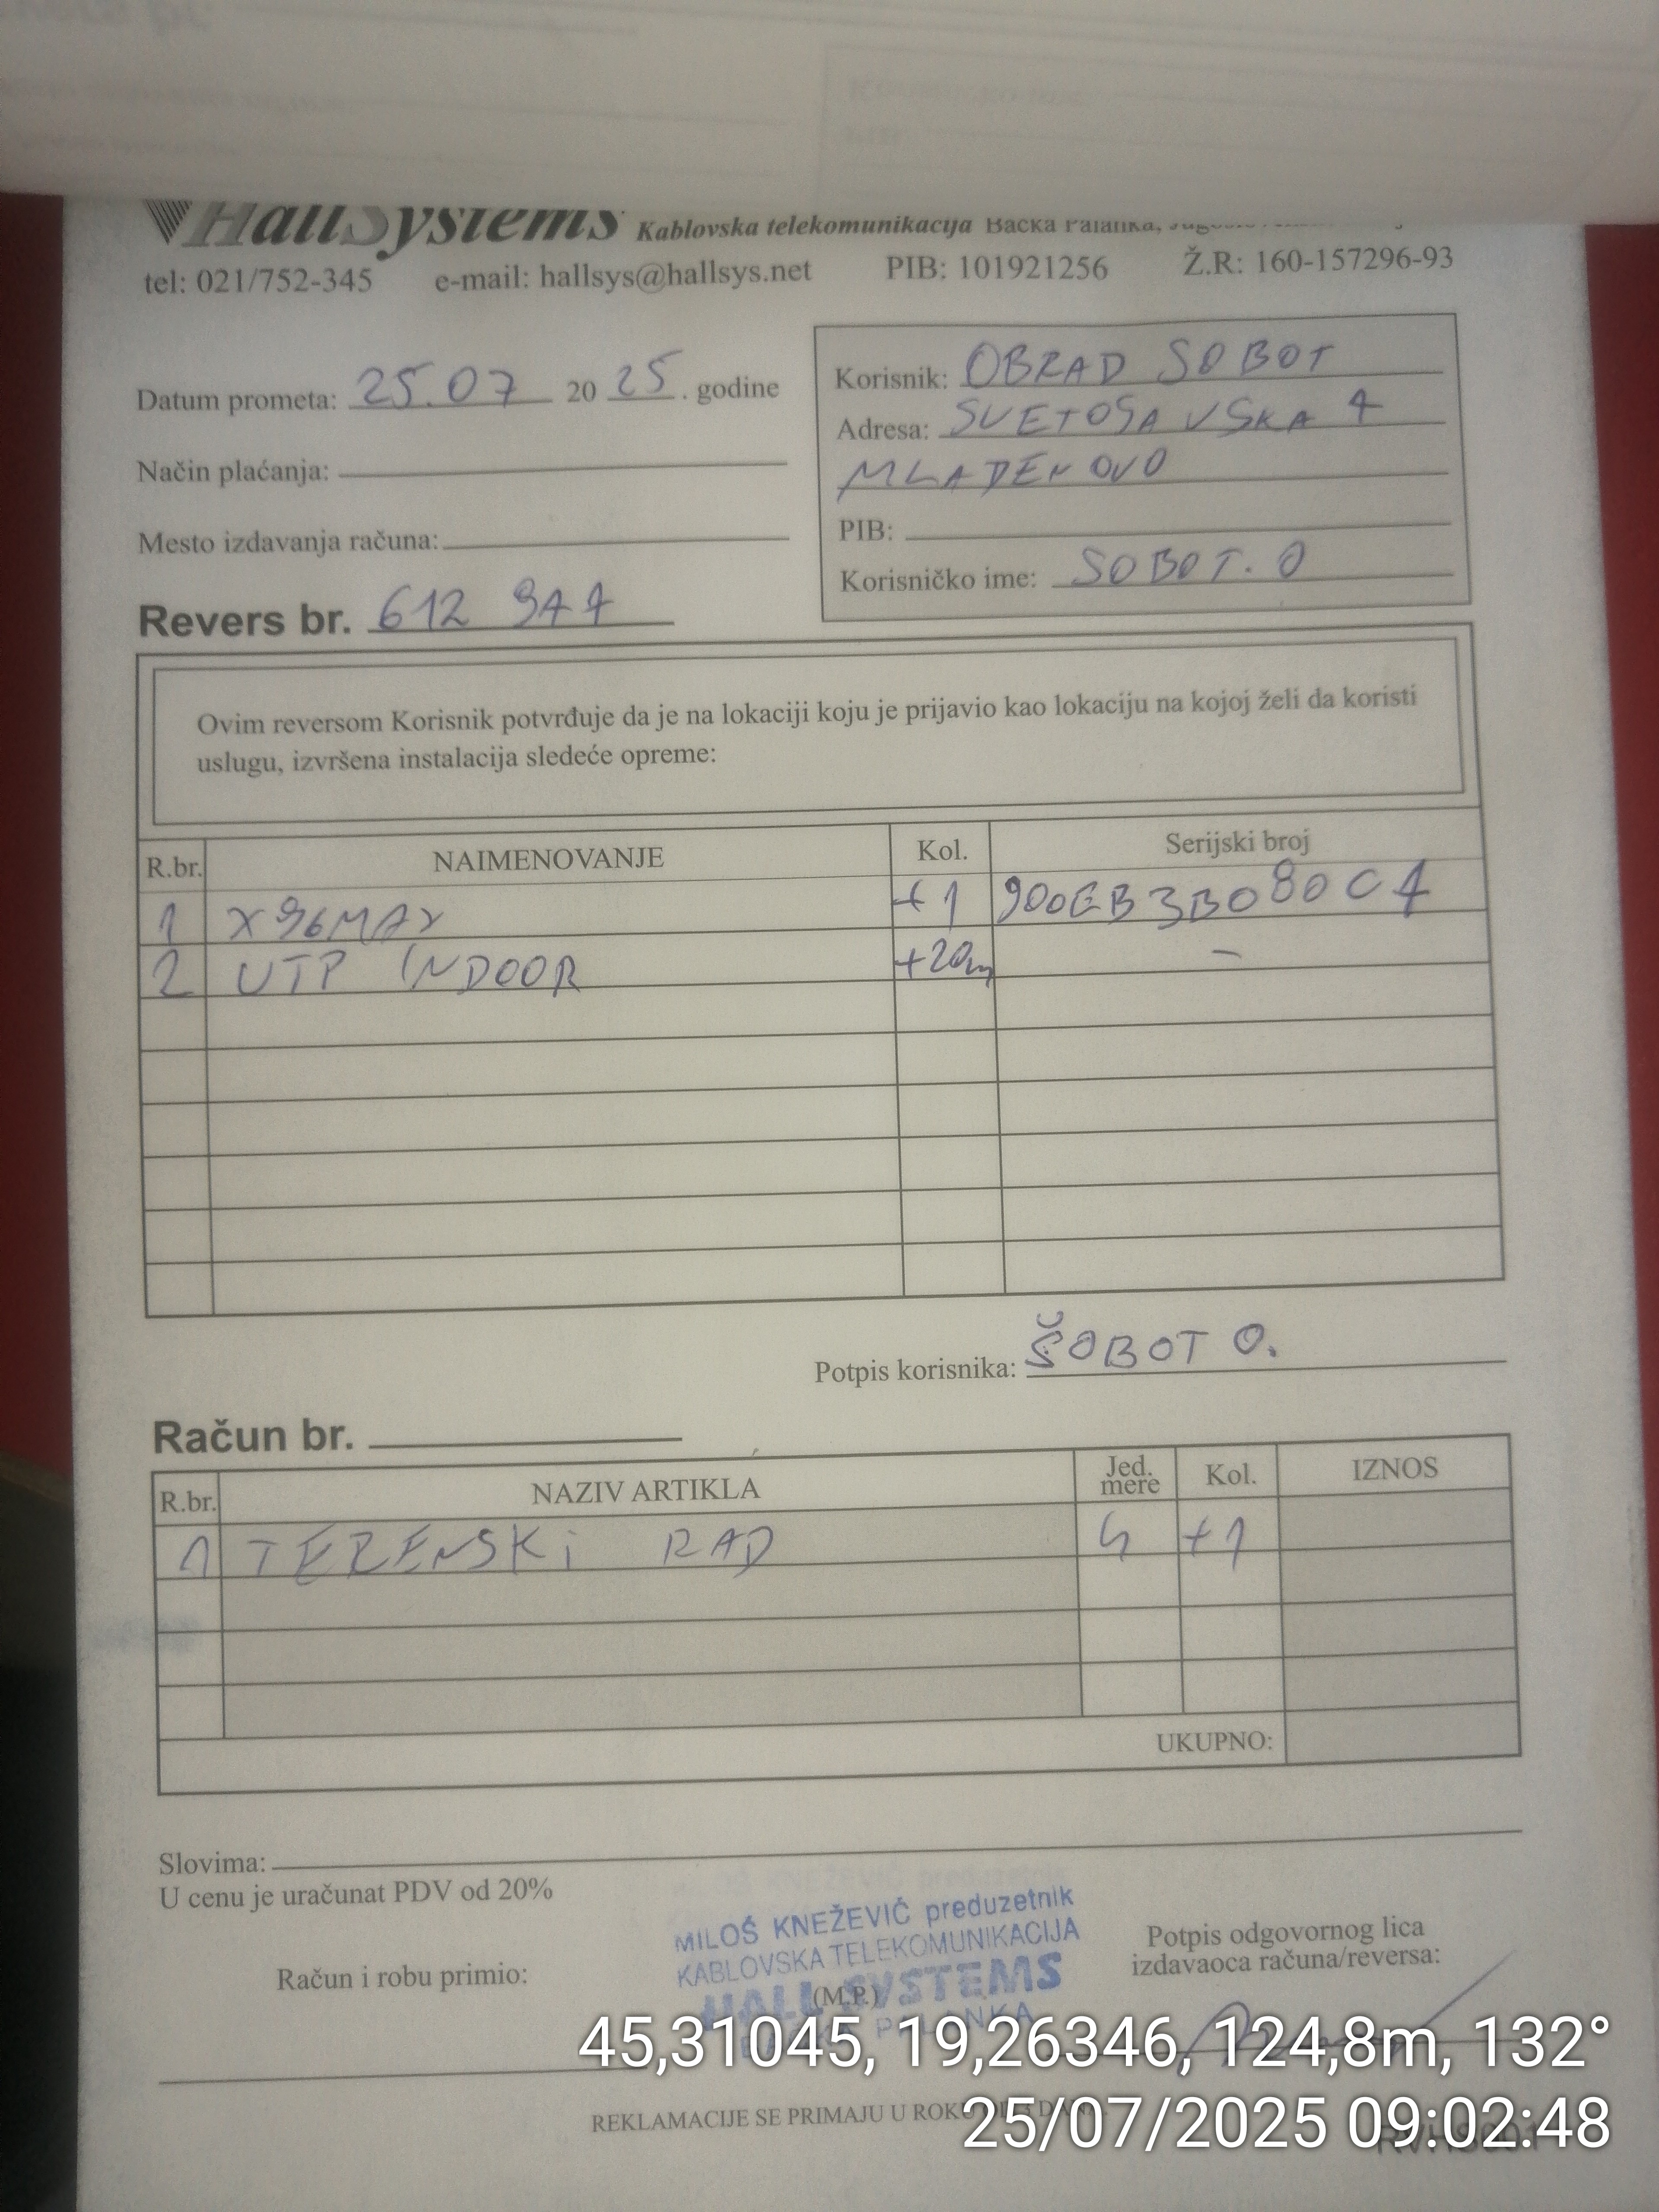 HallSystems Kablovska telekomunikacija Bačka Palanka,
tel: 021/752-345 e-mail: hallsys@hallsys.net PIB: 101921256 Ž.R: 160-157296-93
Datum prometa: 25.07 20 25. godine
Način plaćanja:
Mesto izdavanja računa:
Korisnik: OBRAD SOBOT
Adresa: SVETOSAVSKA 4
MLADENOVO
PIB:
Korisničko ime: SOBOT. O
Revers br. 612
Ovim reversom Korisnik potvrđuje da je na lokaciji koju je prijavio kao lokaciju na kojoj želi da koristi
uslugu, izvršena instalacija sledeće opreme:
R.br. NAIMENOVANJE Kol. Serijski broj
1 X96MAX +1 900EB3B080C4
2 UTP INDOOR +20m –
Potpis korisnika: ŠOBOT O.
Račun br.
R.br. NAZIV ARTIKLA Jed. mere Kol. IZNOS
1 TERENSKI RAD h +1
UKUPNO:
Slovima:
U cenu je uračunat PDV od 20%
MILOŠ KNEŽEVIĆ preduzetnik
KABLOVSKA TELEKOMUNIKACIJA
HALL SYSTEMS
(M.P.)
PALANKA
Račun i robu primio:
Potpis odgovornog lica
izdavaoca računa/reversa:
45,31045, 19,26346, 124,8m, 132°
REKLAMACIJE SE PRIMAJU U ROKU
25/07/2025 09:02:48